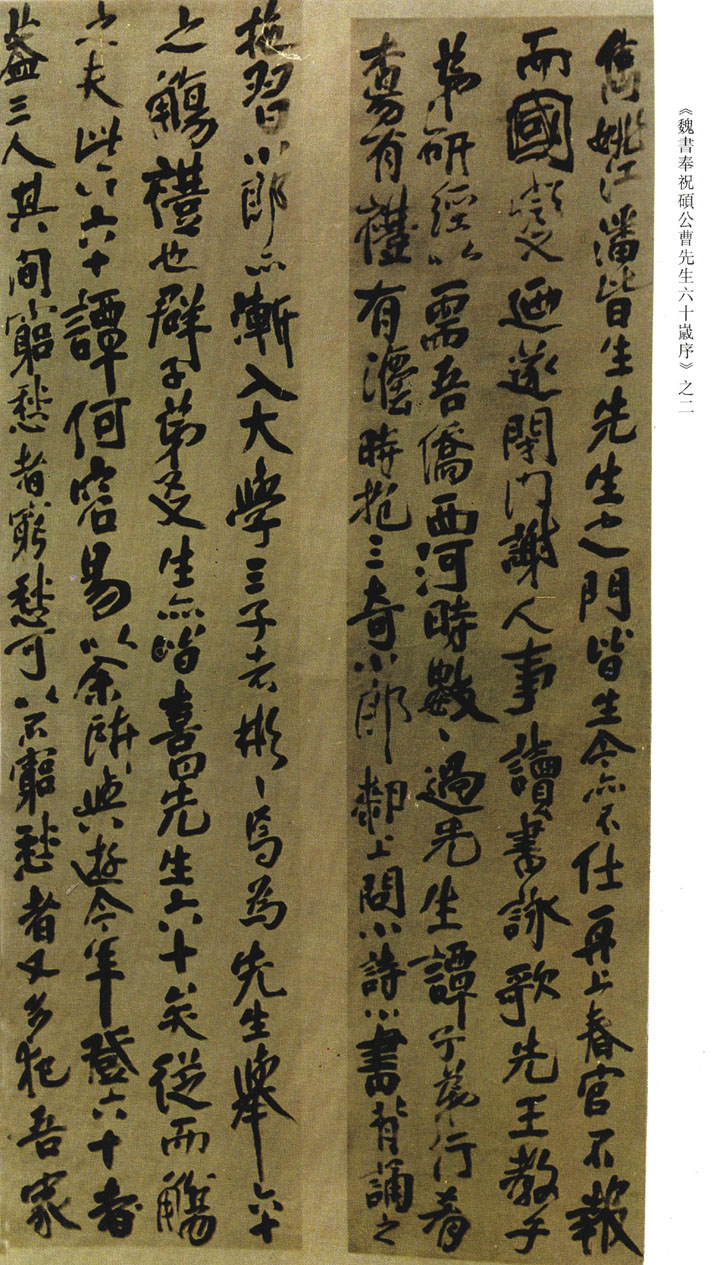 《魏書奉祝碩公曹先生六十嵗序》之二
雋姚江潘皆生先生之門皆生今亦不仕再上春官不報
而國變廼遂閉門謝人事讀書詠歌先王教子
弟研經以需吾僑西河時數〻過先生譚行肴
有禮有灋時抱三奇小郎厀上問小詩小書背誦之
拖習小郎亦漸入大學三子者彬〻焉為先生舉六十
之觴禮也群子弟及生亦皆喜先生六十矣從而觴
之夫此六十譚何容易以余所與遊今年登六十者
蓋三人其間窮愁者窮愁可以不窮愁者又多犯吾家